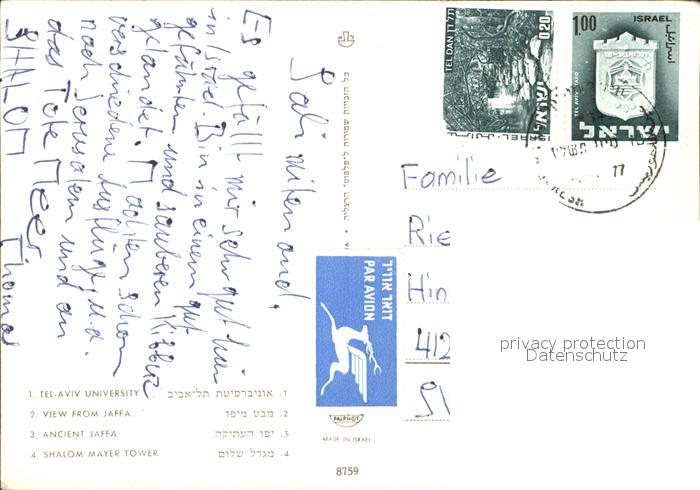 Sali miteinand,
Es gefällt mir sehr gut hier
in Israel. Bin in einem gut
geführten und sauberen Kibbuz
gelandet. Machten schon
verschiedene Ausflüge, u.a.
nach Jerusalem und an
das Tote Meer.
SHALOM Thomas
TEL DAN
תל דן
0.20
ישראל
ISRAEL
1.00
ISRAEL
اسرائيل
TEL AVIV-YAFO
ישראל
77
Familie
Rie
Hin
412
privacy protection
Datenschutz
דואר אוויר
PAR AVION
PALPHOT
MADE IN ISRAEL
8759
1. TEL-AVIV UNIVERSITY 1. אוניברסיטת תל־אביב
2. VIEW FROM JAFFA 2. מבט מיפו
3. ANCIENT JAFFA 3. יפו העתיקה
4 SHALOM MAYER TOWER 4. מגדל שלום